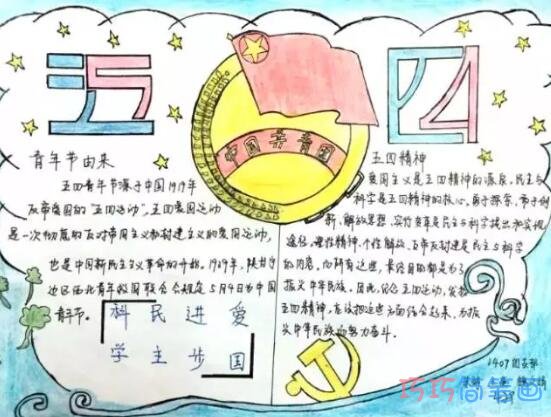 五
四
中国共青团
青年节由来
五四青年节源于中国1919年
反帝爱国的"五四运动",五四爱国运动
是一次彻底的反对帝国主义和封建主义的爱国运动,
也是中国新民主主义革命的开始。1939年,陕甘宁
边区西北青年救国联合会规定5月4日为中国
青年节。
科 民 进 爱
学 主 步 国
五四精神
爱国主义是五四精神的源泉,民主与
科学是五四精神的核心,勇于探索、敢于创
新、解放思想、实行变革是民主与科学提出和实现
途径,理性精神、个性解放、反帝反封建是民主与科学
的内容。而所有这些,最终目的都是为了
振兴中华民族。因此,纪念五四运动,发扬
五四精神,应该把这些方面结合起来,为振
兴中华民族而努力奋斗。
1409团支部
巧巧简笔画